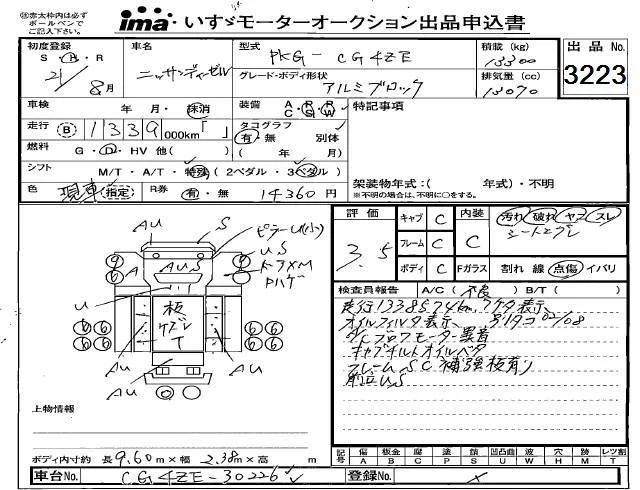 ㊟赤太枠内は必ず
ボールペンで
ご記入下さい。
ima いすゞモーターオークション出品申込書
初度登録
S・H・R
21
8月
車名
ニッサンディーゼル
型式
PKG-CG4ZE
グレード・ボディ形状
アルミブロック
積載(kg)
13300
排気量(cc)
13070
出品No.
3223
車検
年 月・抹消
装備
A・P・R
C S W
特記事項
走行
B 1339 000km
タコグラフ
有・無 別体
( 年 月)
燃料
G・D・HV 他( )
シフト
M/T・A/T・特殊(2ペダル・3ペダル)
色
現車(指定)
R券
有・無
14360円
架装物年式:( 年式)・不明
※不明の場合は、不明に○をする。
評価
3.5
キャブ C
フレーム C
ボディ C
内装
C
汚れ 破れ ヤコ スレ
シートズレ
Fガラス
割れ 線 点傷 イバリ
AU
S
ピラーU(小)
US
ドアXM
A
AUS
U
板
ズレ
T
AU
AU
AU
6 6
6 6
6 6
6 6
検査員報告
A/C(不良)B/T( )
走行1338574km、フケタ表示、
オイルフィルタ表示、
A/Cブロワモーター異音
キャブチルトオイルベタ
フレームSC補強板有り
前立US
上物情報
ボディ内寸約 長9.60m×幅2.38m×高 m
記号
傷 板金 腐 塗 錆 凹凸曲 波 穴 跡 レツ割
A B C P S U W H M T
車台No.
CG4ZE-30226
登録No.